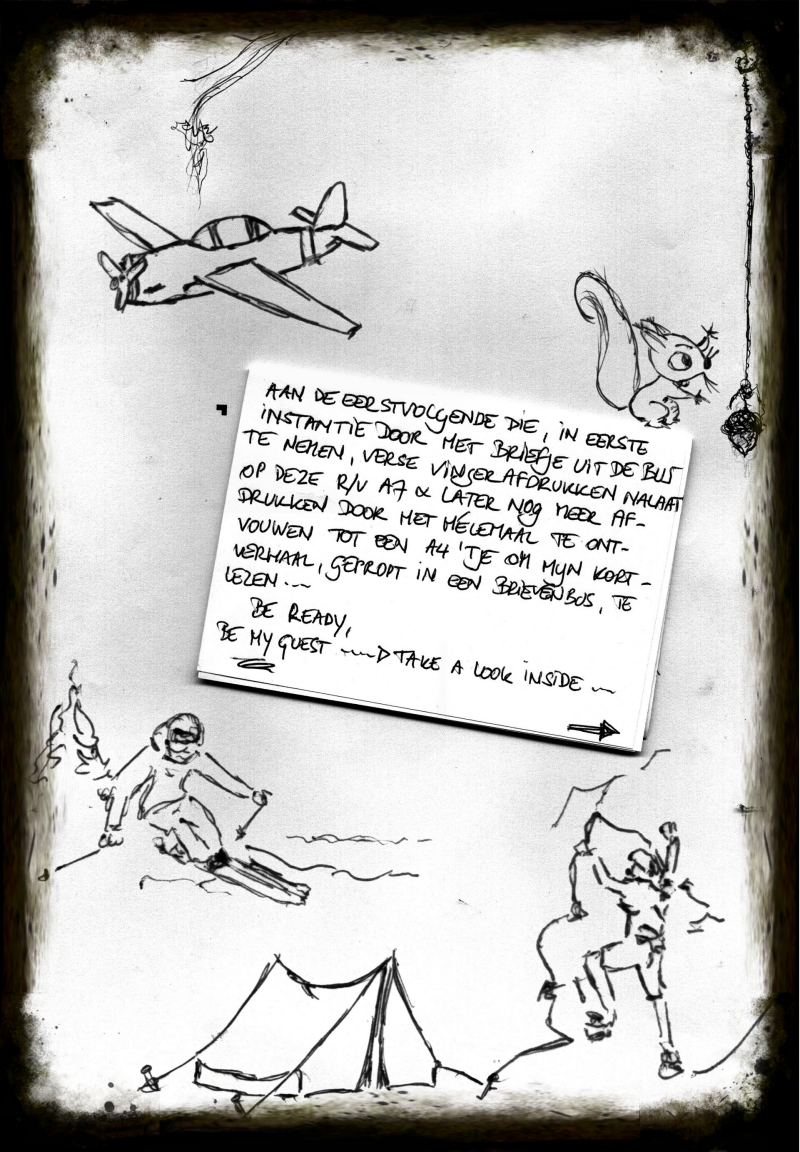 AAN DE EERSTVOLGENDE DIE, IN EERSTE
INSTANTIE DOOR HET BRIEFJE UIT DE BUS
TE NEMEN, VERSE VINGERAFDRUKKEN NALAAT
OP DEZE R/V A7 & LATER NOG MEER AF-
DRUKKEN DOOR HET HELEMAAL TE ONT-
VOUWEN TOT EEN A4'TJE OM MYN KORT-
VERHAAL, GEPROPT IN EEN BRIEVENBUS, TE
LEZEN...
BE READY,
BE MY GUEST TAKE A LOOK INSIDE